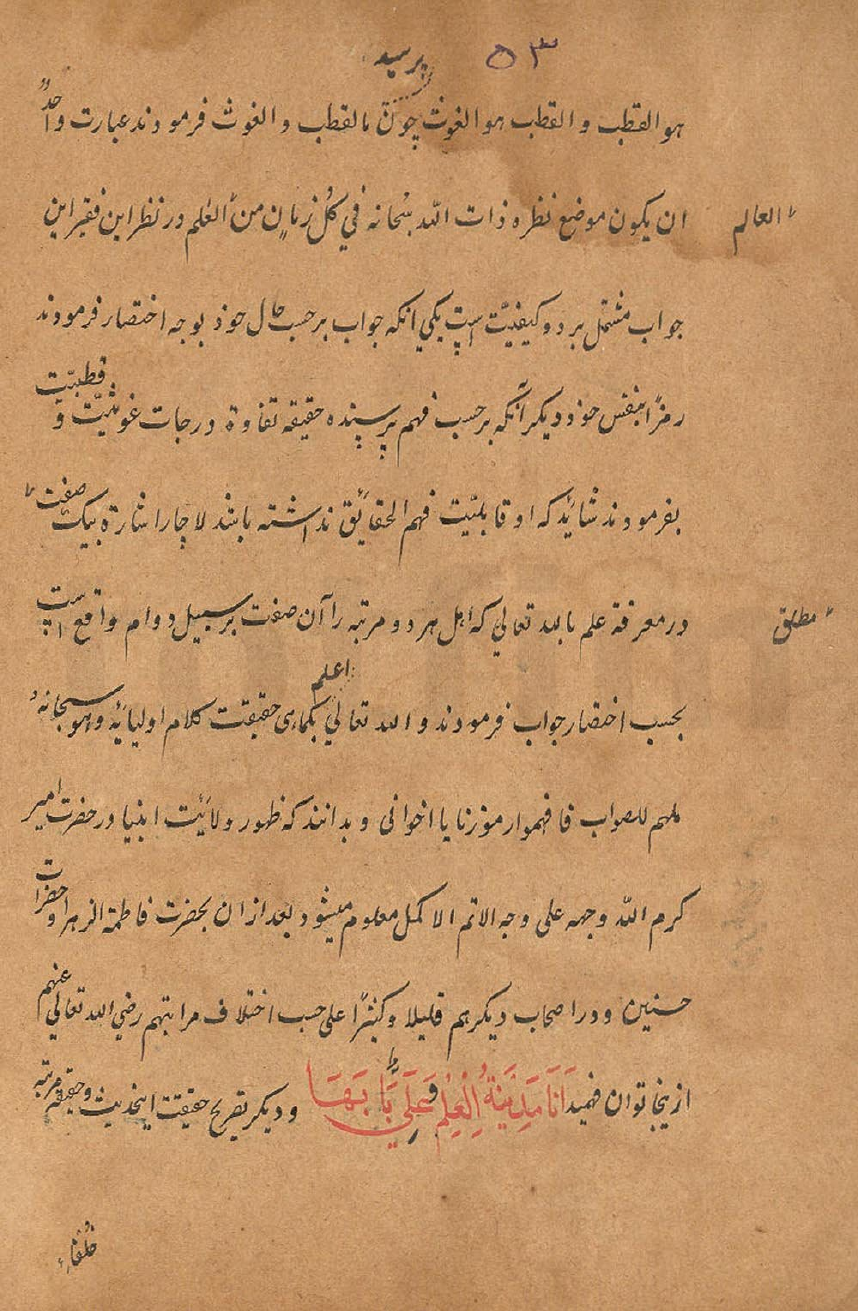 ۵۳
پرسید
هو القطب و القطب هو الغوث چون ما القطب و الغوث فرمودند عبارت واحدٌ
ان یکون موضع نظره ذات الله سبحانه في کل زمان من العلم در نظر این فقیر این
العالم
جواب مشتمل بر دو کیفیّت است یکي انکه جواب برحسب حال خود بوجه اختصار فرمودند
رمزًا بنفس خود دیکر آنکه برحسب فهم پرسنده حقیقه تفاوة درجات غوثیّت و قطبیّت
بفرمودند شائد که او قابلیّت فهم الحقائق نداشته باشد لاچار اشارة بیک صفت
در معرفة علم بالله تعالي که اهل هر دو مرتبه را آن صفت بر سبیل دوام واقع است
مطلق
بحسب اختصار جواب فرمودند و الله تعالي اعلم بکماهی حقیقت کلام اولیائه وهو سبحانه
ملهم للصواب فافهموا رموزنا یا اخوانی و بدانند که ظهور ولائیت انبیا در حضرت امیر
کرم الله وجهه علی وجه الاتم الاکمل معلوم میشود بعد ازان بحضرت فاطمة الزهرا و حضرات
حسنین و در اصحاب دیکر هم قلیلا و کثیرًا علی حسب اختلاف مراتبهم رضي الله تعالي عنهم
ازینجا توان فهمید اَنَا مَدِیْنَةُ الْعِلْمِ وَ عَلَيٌّ بَابُهَا و دیکر بصریح حقیقت اینحدیث و حقیقة مرتبه
خلفاء